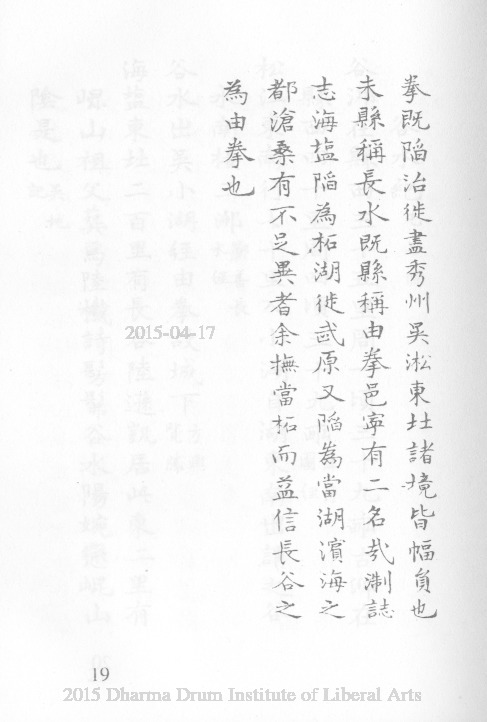 拳既陷治徙盡秀州吳淞東北諸境皆幅員也
未縣稱長水既縣稱由拳邑寧有二名哉淛誌
志海塩陷為柘湖徙武原又陷為當湖濱海之
都滄桑有不足異者余撫當柘而益信長谷之
為由拳也
2015-04-17
19
2015 Dharma Drum Institute of Liberal Arts